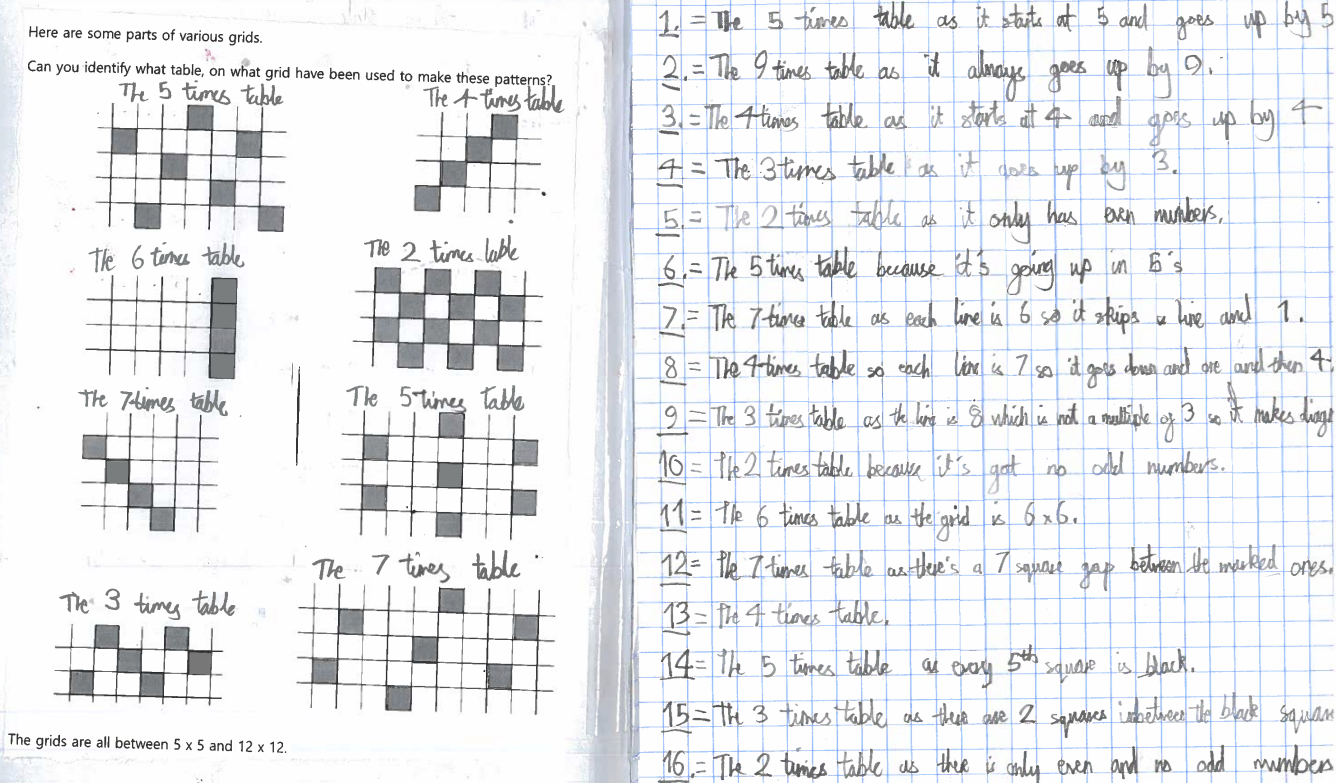 Here are some parts of various grids.
Can you identify what table, on what grid have been used to make these patterns?
The 5 times table
The 4 times table
The 6 times table
The 2 times table
The 7 times table
The 5 times table
The 3 times table
The 7 times table
The grids are all between 5 x 5 and 12 x 12.
1. = The 5 times table as it starts at 5 and goes up by 5
2. = The 9 times table as it always goes up by 9.
3. = The 4 times table as it starts at 4 and goes up by 4
4 = The 3 times table as it goes up by 3.
5. = The 2 times table as it only has even numbers.
6. = The 5 times table because it's going up in 5's
7. = The 7 times table as each line is 6 so it skips a line and 1.
8 = The 4 times table so each line is 7 so it goes down and one and then 4.
9 = The 3 times table as the line is 8 which is not a multiple of 3 so it makes diag
10 = The 2 times table because it's got no odd numbers.
11 = The 6 times table as the grid is 6x6.
12 = The 7 times table as there's a 7 square gap between the marked ones.
13 = The 4 times table.
14 = The 5 times table as every 5th square is black.
15 = The 3 times table as there are 2 squares inbetween the black squar
16. = The 2 times table as there is only even and no odd numbers